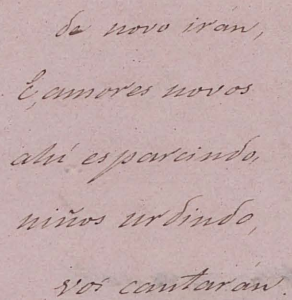 de novo irán,
E, amores novos
ahí esparcindo,
niños urdindo,
vos cantarán.